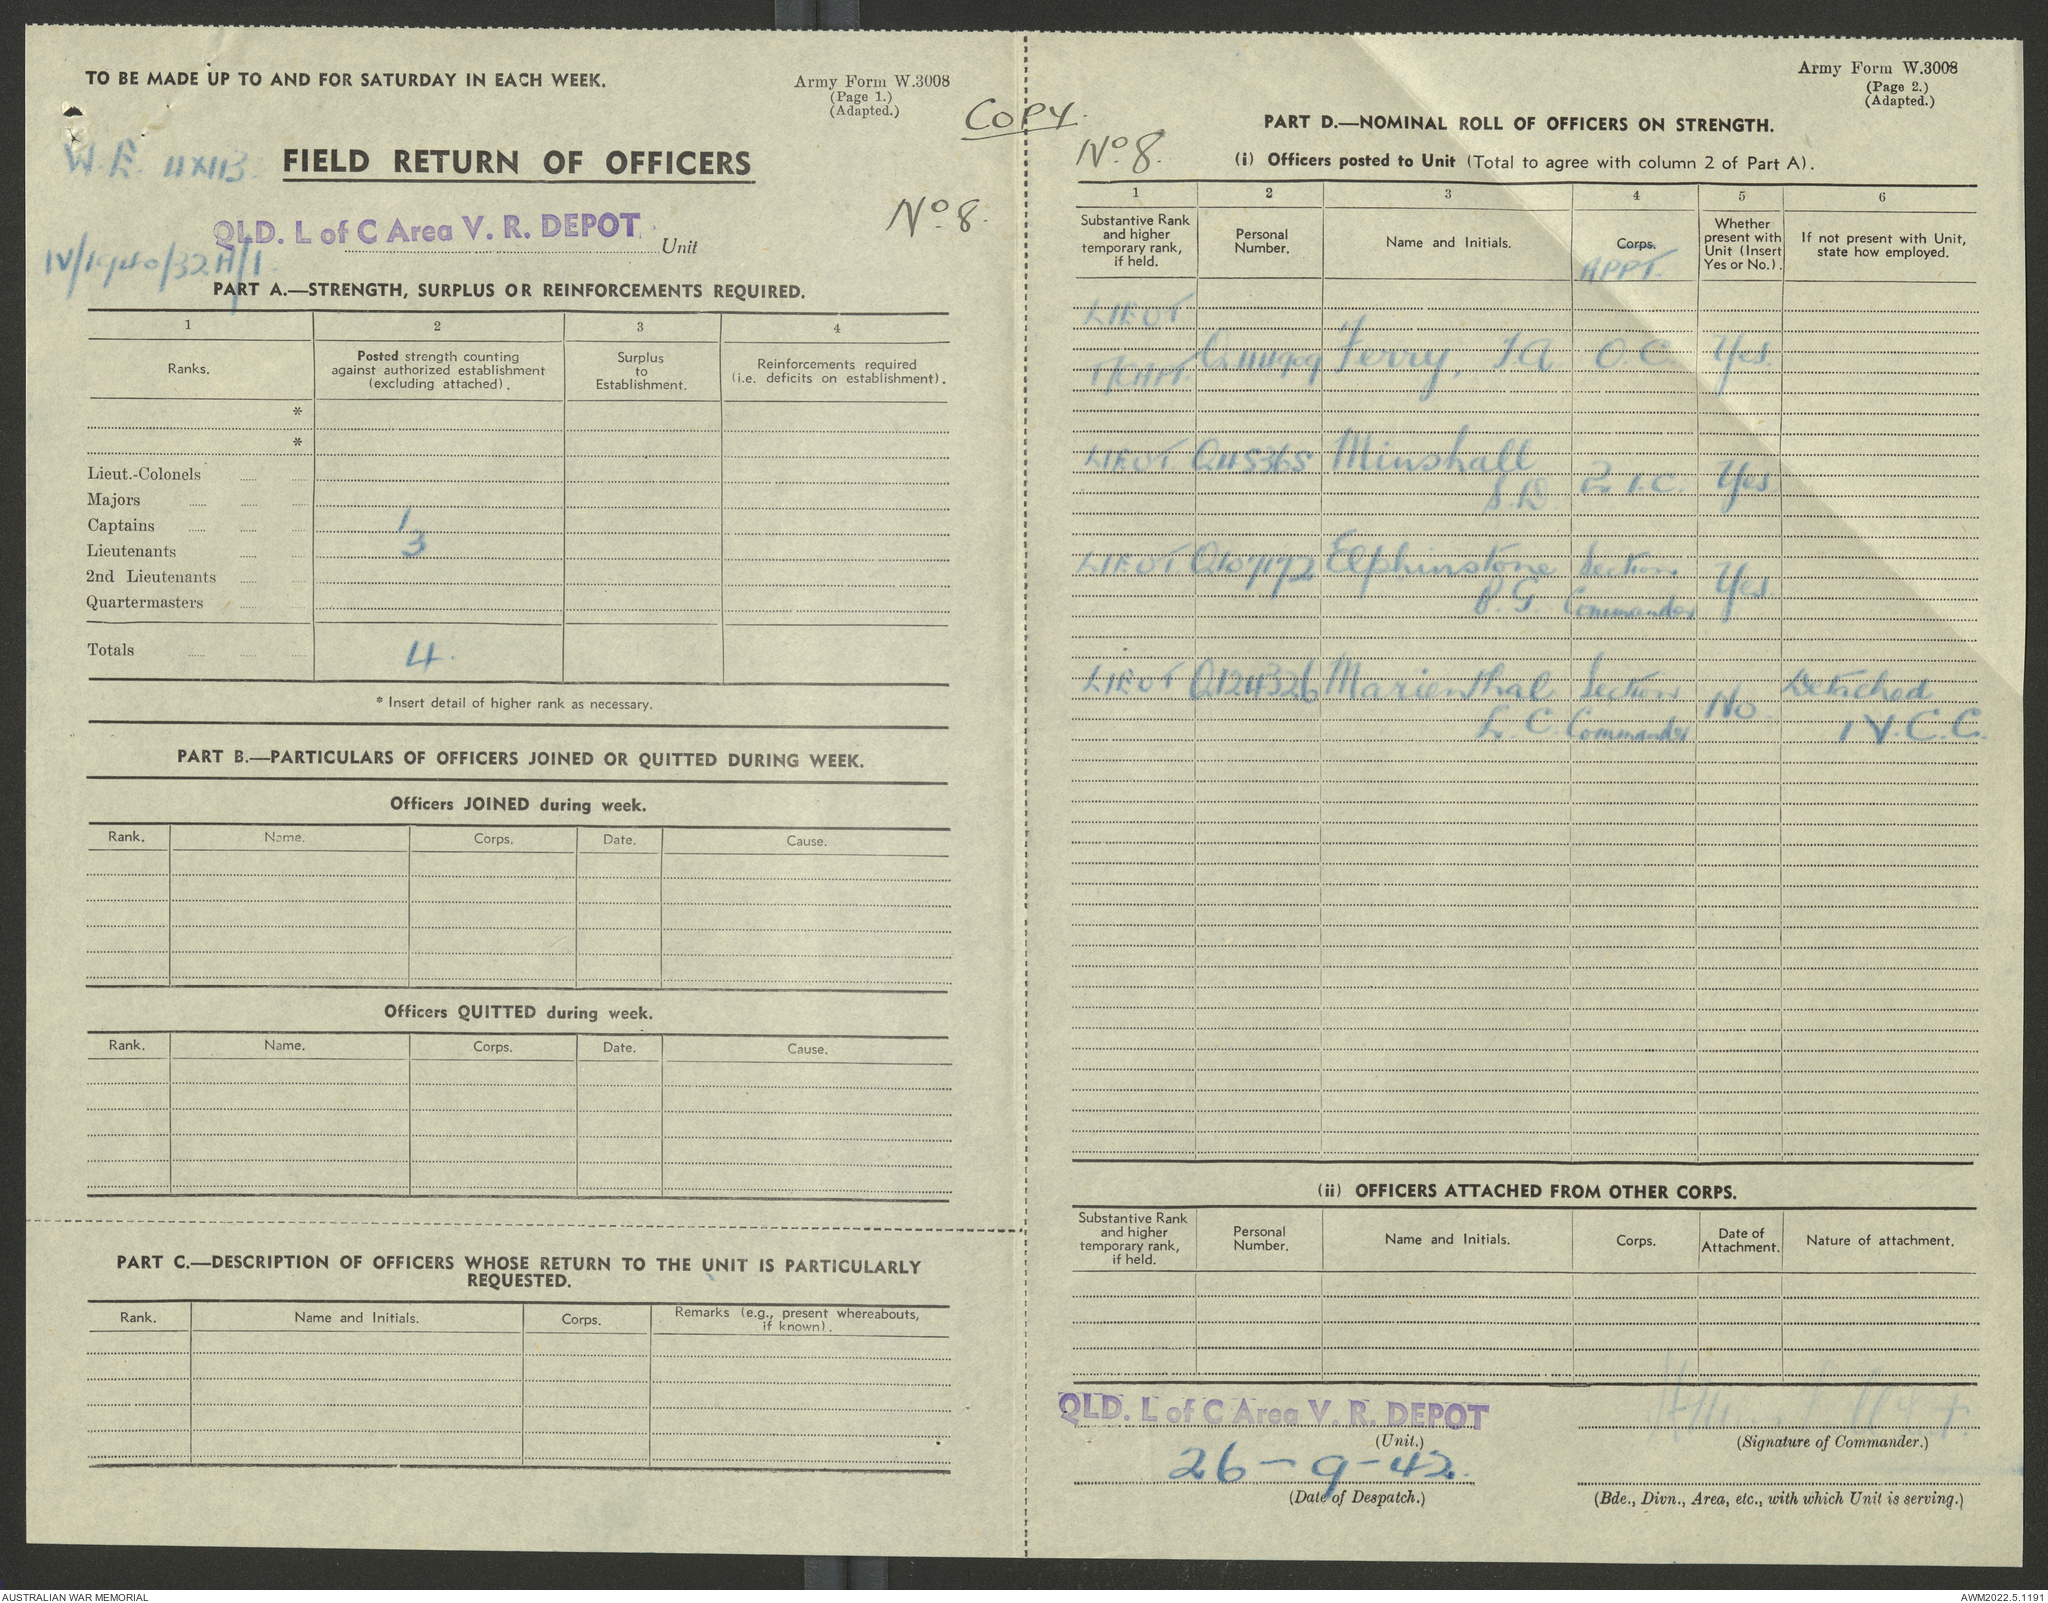 TO BE MADE UP TO AND FOR SATURDAY IN EACH WEEK.
Army Form W.3008
(Page 1.)
(Adapted.)
COPY.
W.E.
FIELD RETURN OF OFFICERS
No. 8.
QLD. L of C Area V. R. DEPOT
Unit
IV/1940/32A/1.
PART A.—STRENGTH, SURPLUS OR REINFORCEMENTS REQUIRED.
1 2 3 4
Ranks.
Posted strength counting
against authorized establishment
(excluding attached).
Surplus
to
Establishment.
Reinforcements required
(i.e. deficits on establishment).
*
*
Lieut.-Colonels
Majors
Captains 1
Lieutenants 3
2nd Lieutenants
Quartermasters
Totals 4.
* Insert detail of higher rank as necessary.
PART B.—PARTICULARS OF OFFICERS JOINED OR QUITTED DURING WEEK.
Officers JOINED during week.
Rank. Name. Corps. Date. Cause.
Officers QUITTED during week.
Rank. Name. Corps. Date. Cause.
PART C.—DESCRIPTION OF OFFICERS WHOSE RETURN TO THE UNIT IS PARTICULARLY
REQUESTED.
Rank. Name and Initials. Corps. Remarks (e.g., present whereabouts,
if known).
Army Form W.3008
(Page 2.)
(Adapted.)
PART D.—NOMINAL ROLL OF OFFICERS ON STRENGTH.
No. 8.
(i) Officers posted to Unit (Total to agree with column 2 of Part A).
1 2 3 4 5 6
Substantive Rank
and higher
temporary rank,
if held.
Personal
Number.
Name and Initials.
Corps.
APPT.
Whether
present with
Unit (Insert
Yes or No.).
If not present with Unit,
state how employed.
LIEUT
T/CAPT. Ferry, J.A O.C. Yes.
LIEUT Q45365 Minshall 2 I.C. Yes
S.D.
LIEUT Q107172 Elphinstone Section Yes
P.G. Commander
LIEUT Q124326 Marienthal Section No. Detached
L. C. Commander 1 V.C.C.
(ii) OFFICERS ATTACHED FROM OTHER CORPS.
Substantive Rank
and higher
temporary rank,
if held.
Personal
Number.
Name and Initials.
Corps.
Date of
Attachment.
Nature of attachment.
QLD. L of C Area V. R. DEPOT
(Unit.)
(Signature of Commander.)
26-9-42.
(Date of Despatch.)
(Bde., Divn., Area, etc., with which Unit is serving.)
AUSTRALIAN WAR MEMORIAL
AWM2022.5.1191